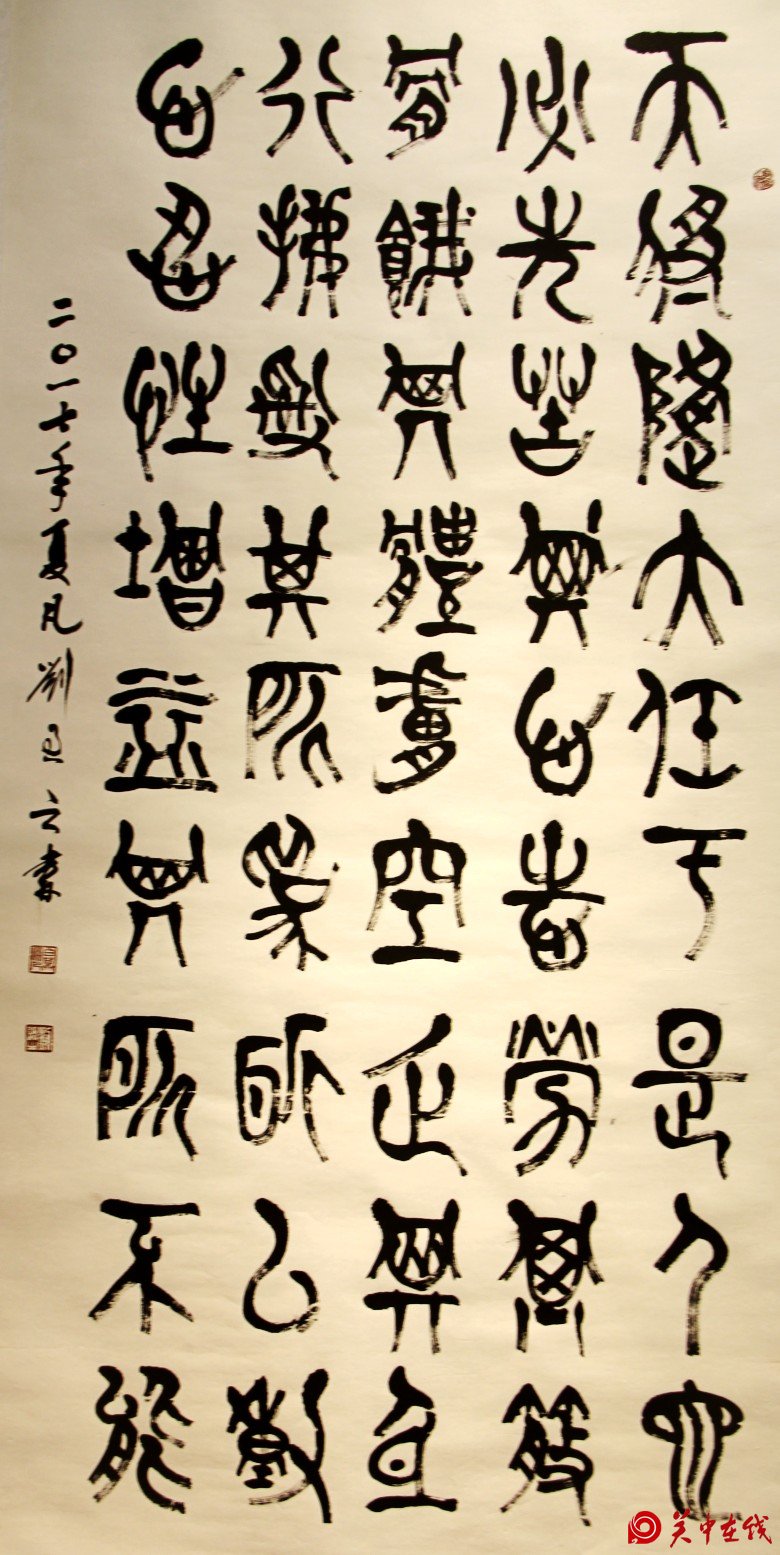 天將降大任于是人也
必先苦其心志勞其筋
骨餓其體膚空乏其身
行拂亂其所為所以動
心忍性增益其所不能
二〇一七年夏月劉云書
关中在线